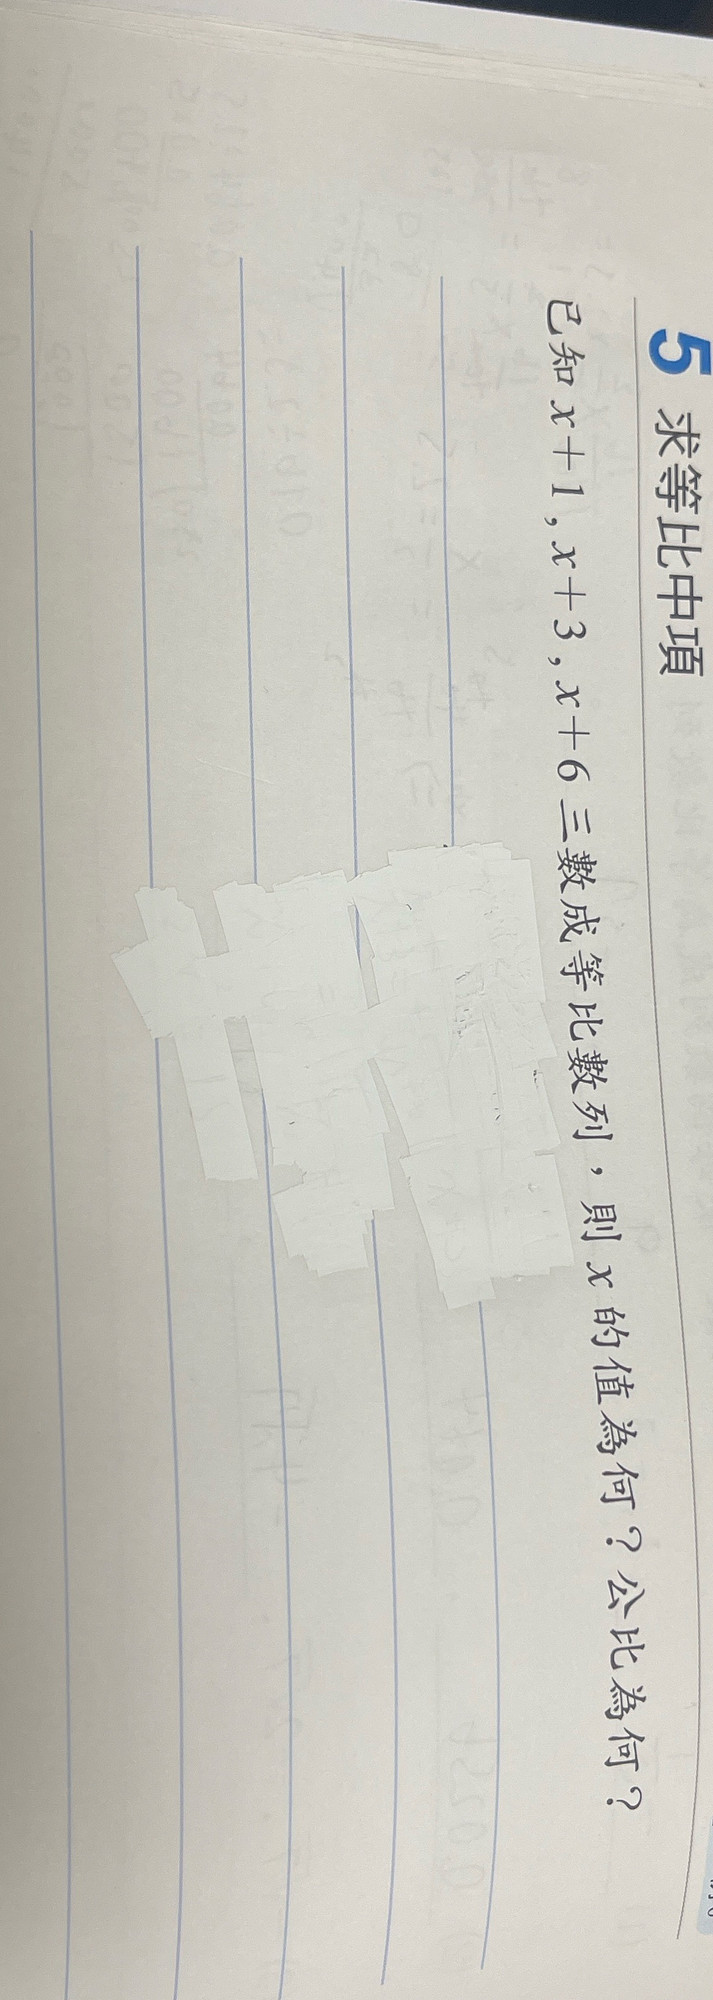 5 求等比中項
已知 x+1, x+3, x+6 三數成等比數列，則 x 的值為何？公比為何？